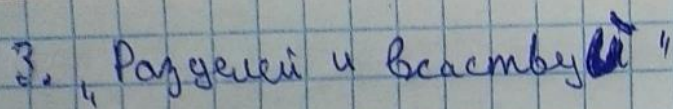 3. „Разделей и всаствуй"